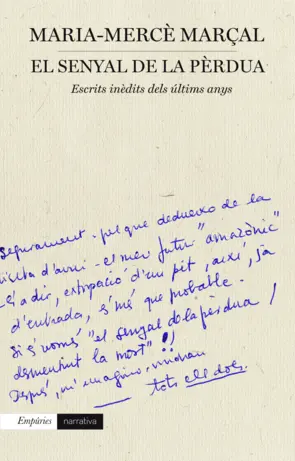 MARIA-MERCÈ MARÇAL
EL SENYAL DE LA PÈRDUA
Escrits inèdits dels últims anys
Segurament - pel que dedueixo de la
visita d'avui - el meu futur "amazònic"
és a dir, extirpació d'un pit, així, ja
d'entrada, és més que probable.
Si és només "el senyal de la pèrdua /
desmentint la mort"!!
Després, m'imagino,
tots els dos.
Empúries narrativa